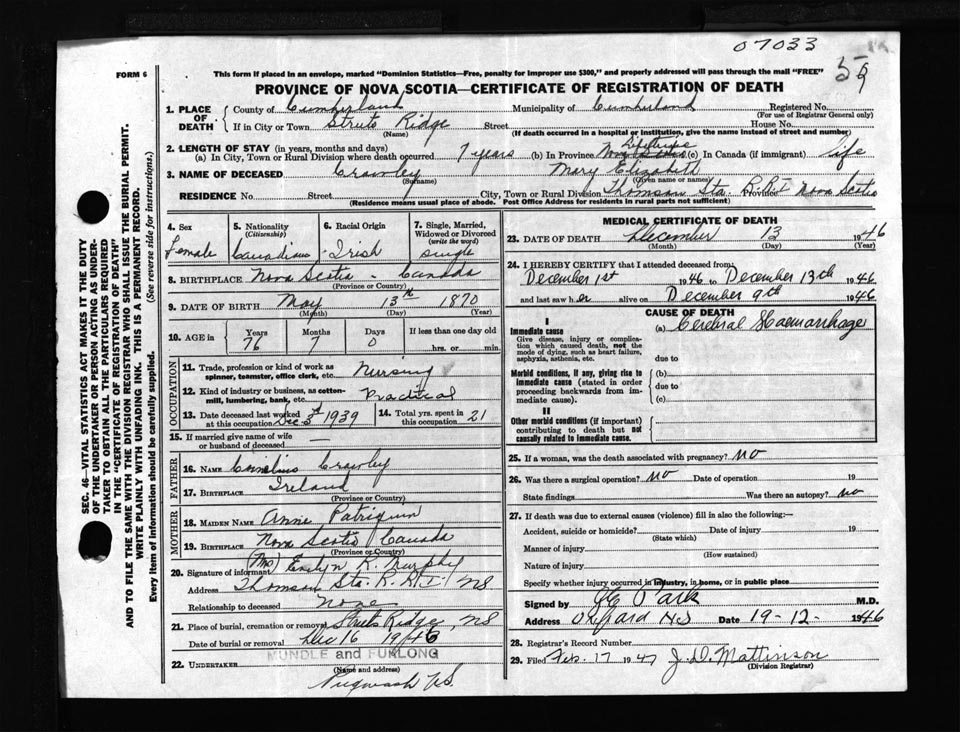 07033
59
FORM 6
This form if placed in an envelope, marked "Dominion Statistics—Free, penalty for improper use $300," and properly addressed will pass through the mail "FREE"
PROVINCE OF NOVA SCOTIA—CERTIFICATE OF REGISTRATION OF DEATH
1. PLACE OF DEATH County of Cumberland Municipality of Cumberland Registered No.
(For use of Registrar General only)
If in City or Town Struts Ridge Street House No.
(If death occurred in a hospital or institution, give the name instead of street and number)
2. LENGTH OF STAY (in years, months and days)
(a) In City, Town or Rural Division where death occurred 7 years (b) In Province Lifetime Nova Scotia (c) In Canada (if immigrant) life
3. NAME OF DECEASED Crawley Mary Elizabeth
(Surname) (Given name or names)
RESIDENCE No. Street City, Town or Rural Division Thomson Sta. R.R.1 Province Nova Scotia
(Residence means usual place of abode. Post Office Address for residents in rural parts not sufficient)
4. Sex Female
5. Nationality (Citizenship) Canadian
6. Racial Origin Irish
7. Single, Married, Widowed or Divorced (write the word) single
8. BIRTHPLACE Nova Scotia - Canada
(Province or Country)
9. DATE OF BIRTH May 13th 1870
(Month) (Day) (Year)
10. AGE in Years 76 Months 7 Days 0 If less than one day old hrs. or min.
OCCUPATION
11. Trade, profession or kind of work as spinner, teamster, office clerk, etc. Nursing
12. Kind of industry or business, as cotton-mill, lumbering, bank, etc. Practical
13. Date deceased last worked at this occupation Dec 3rd 1939
14. Total yrs. spent in this occupation 21
15. If married give name of wife or husband of deceased —
FATHER
16. NAME Cornelius Crawley
17. BIRTHPLACE Ireland
(Province or Country)
MOTHER
18. MAIDEN NAME Anne Patriquin
19. BIRTHPLACE Nova Scotia Canada
(Province or Country)
20. Signature of informant (Mrs) Evelyn R. Murphy
Address Thomson Sta. R.R.1. NS
Relationship to deceased None
21. Place of burial, cremation or removal Struts Ridge, NS
Date of burial or removal Dec 16 1946
22. UNDERTAKER MUNDLE and FURLONG
(Name and address)
Pugwash N.S.
MEDICAL CERTIFICATE OF DEATH
23. DATE OF DEATH December 13 1946
(Month) (Day) (Year)
24. I HEREBY CERTIFY that I attended deceased from:
December 1st 1946 to December 13th 1946
and last saw her alive on December 9th 1946
CAUSE OF DEATH
I
Immediate cause (a) Cerebral Haemorrhage
Give disease, injury or complication which caused death, not the mode of dying, such as heart failure, asphyxia, asthenia, etc.
due to
Morbid conditions, if any, giving rise to immediate cause (stated in order proceeding backwards from immediate cause).
(b)
due to
(c)
II
Other morbid conditions (if important) contributing to death but not causally related to immediate cause.
25. If a woman, was the death associated with pregnancy? no
26. Was there a surgical operation? no Date of operation 19
State findings Was there an autopsy? no
27. If death was due to external causes (violence) fill in also the following:—
Accident, suicide or homicide? Date of injury 19
(State which)
Manner of injury
(How sustained)
Nature of injury
Specify whether injury occurred in industry, in home, or in public place
Signed by M.D.
Address Oxford NS Date 19-12- 1946
28. Registrar's Record Number
29. Filed Feb. 17 1947 J.D. Mattinson
(Division Registrar)
SEC. 46—VITAL STATISTICS ACT MAKES IT THE DUTY
OF THE UNDERTAKER OR PERSON ACTING AS UNDER-
TAKER TO OBTAIN ALL THE PARTICULARS REQUIRED
IN THE "CERTIFICATE OF REGISTRATION OF DEATH"
AND TO FILE THE SAME WITH THE DIVISION REGISTRAR WHO SHALL ISSUE THE BURIAL PERMIT.
WRITE PLAINLY WITH UNFADING INK. THIS IS A PERMANENT RECORD.
Every item of information should be carefully supplied. (See reverse side for instructions.)